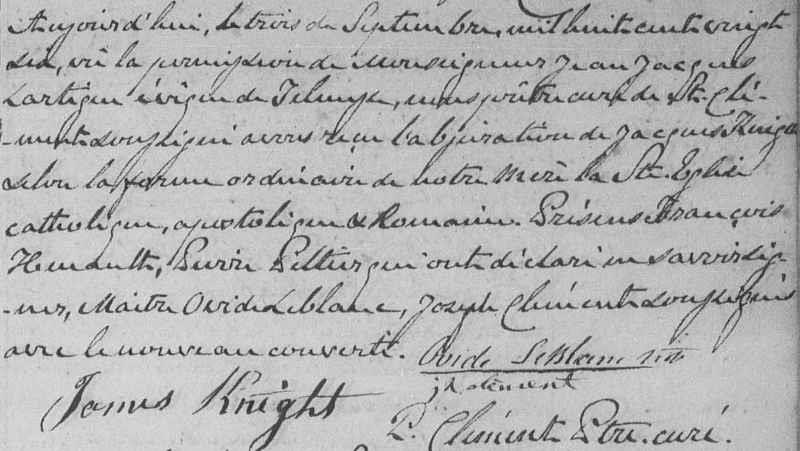 Aujourd'hui, le trois de Septembre, mil huit cent vingt
six, vû la permission de Monseigneur Jean Jacques
Lartigue évêque de Telmesse, nous prêtre curé de St. Clé-
-ment soussigné avons reçu l'abjuration de Jacques Knight
selon la forme ordinaire de notre Mère la Ste. Eglise
catholique, apostolique & Romaine. Présens François
Henault, Pierre Peltier qui ont déclaré ne savoir sig-
-ner, Maitre Ovide Leblanc, Joseph Clément soussignés
avec le nouveau converti. Ovide LeBlanc
jh clément
James Knight
P. Clément Ptre. curé.